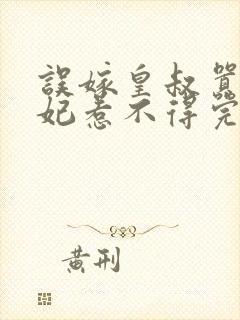 誤嫁皇叔
妃惹不得完
黄刑